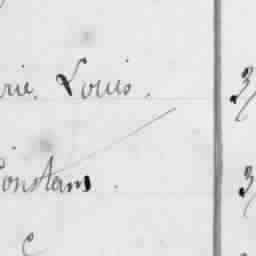 rie. Louis. 3/
Constans. 3/